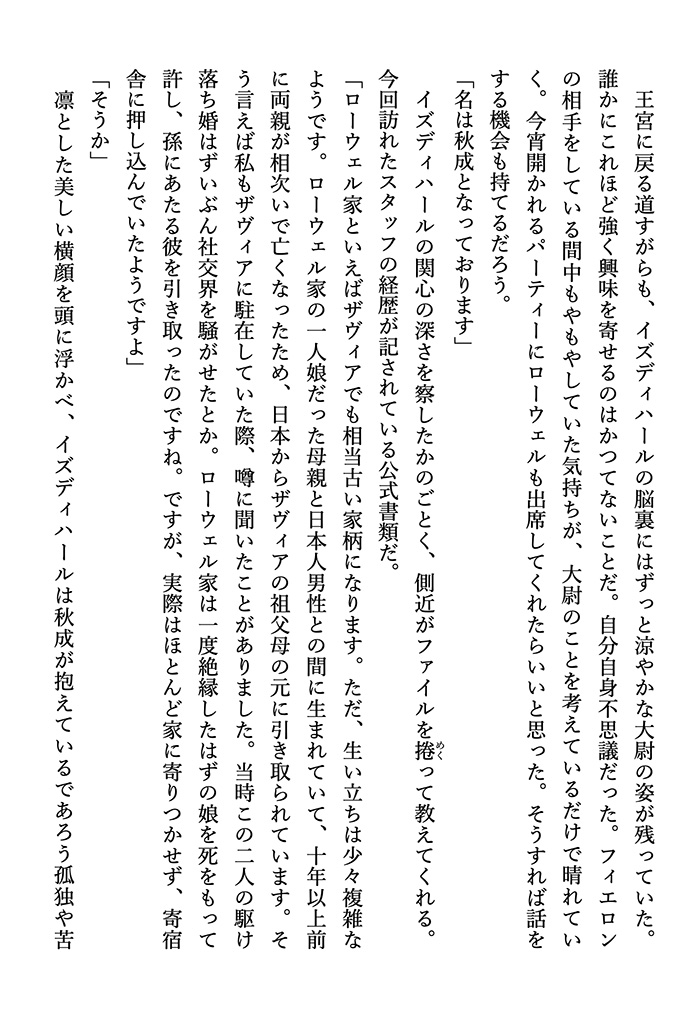 王宮に戻る道すがらも、イズディハールの脳裏にはずっと涼やかな大尉の姿が残っていた。
誰かにこれほど強く興味を寄せるのはかつてないことだ。自分自身不思議だった。フィエロン
の相手をしている間中もやもやしていた気持ちが、大尉のことを考えているだけで晴れてい
く。今宵開かれるパーティーにローウェルも出席してくれたらいいと思った。そうすれば話を
する機会も持てるだろう。
「名は秋成となっております」
イズディハールの関心の深さを察したかのごとく、側近がファイルを捲って教えてくれる。
めく
今回訪れたスタッフの経歴が記されている公式書類だ。
「ローウェル家といえばザヴィアでも相当古い家柄になります。ただ、生い立ちは少々複雑な
ようです。ローウェル家の一人娘だった母親と日本人男性との間に生まれていて、十年以上前
に両親が相次いで亡くなったため、日本からザヴィアの祖父母の元に引き取られています。そ
う言えば私もザヴィアに駐在していた際、噂に聞いたことがありました。当時この二人の駆け
落ち婚はずいぶん社交界を騒がせたとか。ローウェル家は一度絶縁したはずの娘を死をもって
許し、孫にあたる彼を引き取ったのですね。ですが、実際はほとんど家に寄りつかせず、寄宿
舎に押し込んでいたようですよ」
「そうか」
凛とした美しい横顔を頭に浮かべ、イズディハールは秋成が抱えているであろう孤独や苦